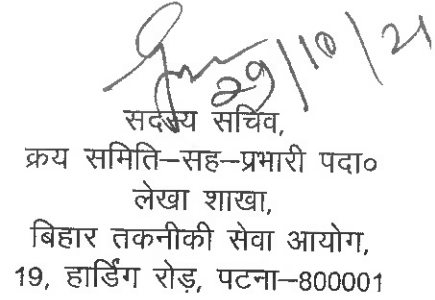 29/10/21
सदस्य सचिव,
क्रय समिति–सह–प्रभारी पदा०
लेखा शाखा,
बिहार तकनीकी सेवा आयोग,
19, हार्डिंग रोड़, पटना–800001